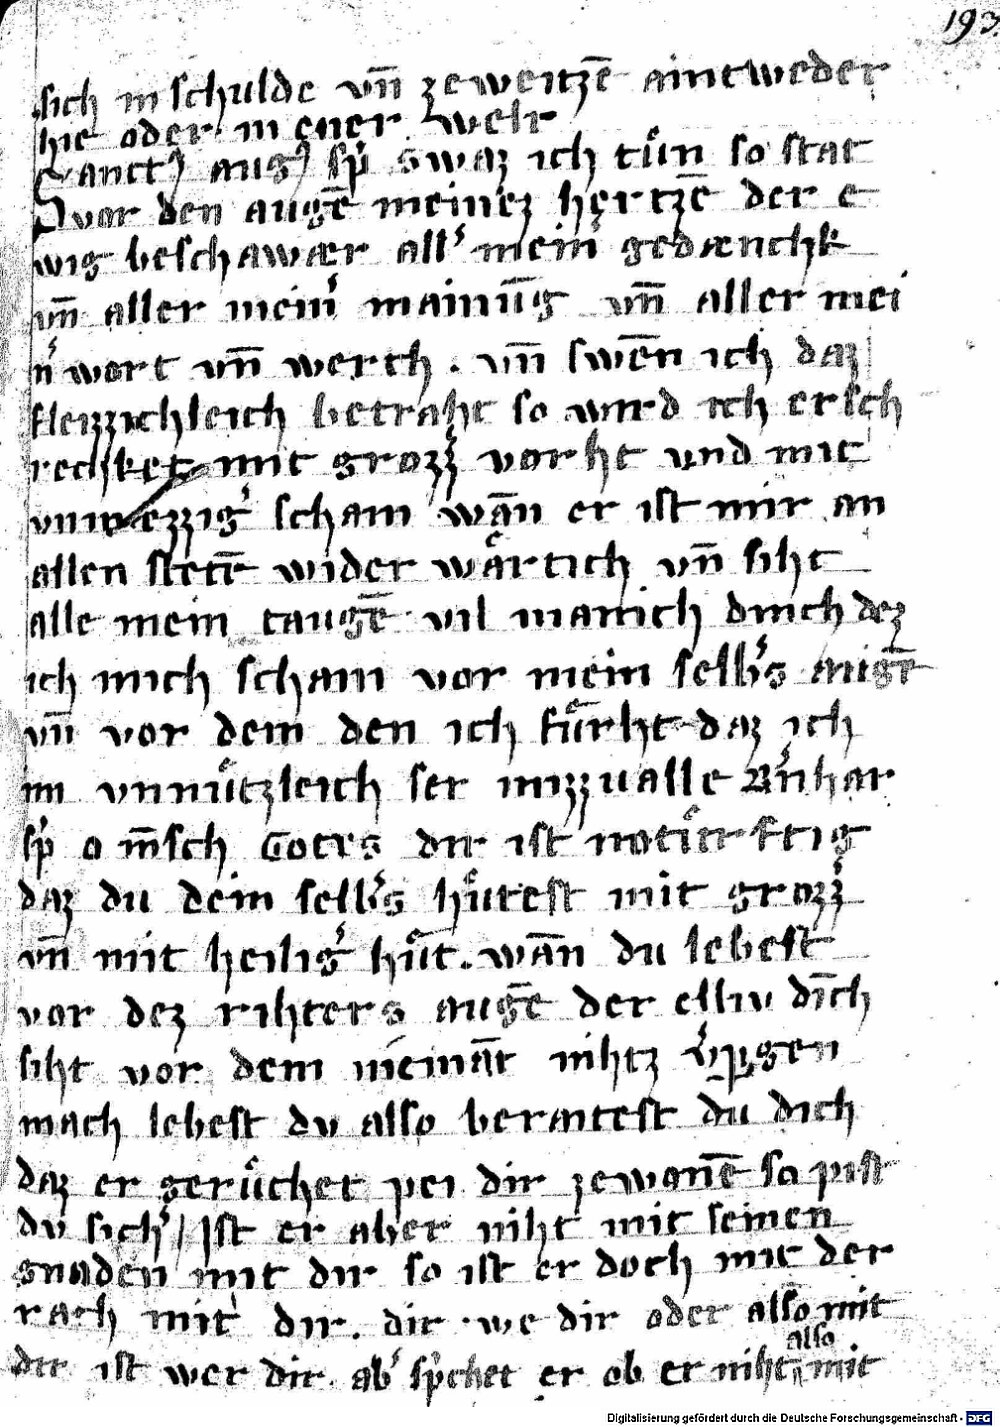 193.
sich in schulde vn̄ zeweitzē aintweder
hie oder in ener welt
Sanct9 aug9 sp̓ swaz ich tůn so stat
vor den augē meinez hertzē der e
wig beschawær all̓ mein̓ gedænchk
vn̄ aller mein̓ mainūg vn̄ aller mei
n̓ wort vn̄ werch . vn̄ swēn ich daz
fleizzichleich betraht so wird ich ersch
rechket mit grozz̓ vorht und mit
vnmezzig̓ scham wān er ist mir an
allen stetē wider wårtich vn̄ siht
alle mein taugē vil manich dinch dez
ich mich scham vor mein selb̓s augē
vn̄ vor dem den ich fůrht daz ich
im vnnůtzleich ser mizzualle B̓nhar
sp̓ o m̄sch Gotes dir ist notůrftig
daz du dein selb̓s hůtest mit grozz̓
vn̄ mit heilig̓ hůt . wān du lebest
vor dez rihters augē der elliv dīch
siht vor dem niemāt nihtz v̓pgen
mach lebest dv also beraitest du dich
daz er gerůchet pei dir zewonē so pist
dv sich̓ / Ist er aber niht mit seinen
gnaden mit dir so ist er doch mit der
rach mit dir . dir . we dir oder also mit
dir ist wer dir . ab̓ sp̓chet er ob er niht also mit
Digitalisierung gefördert durch die Deutsche Forschungsgemeinschaft - DFG